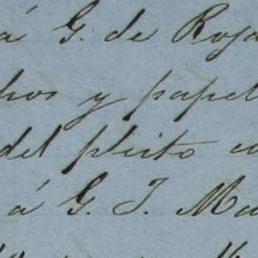 á G. de Roja
hos y papel
del pleito co
á G. J. Ma